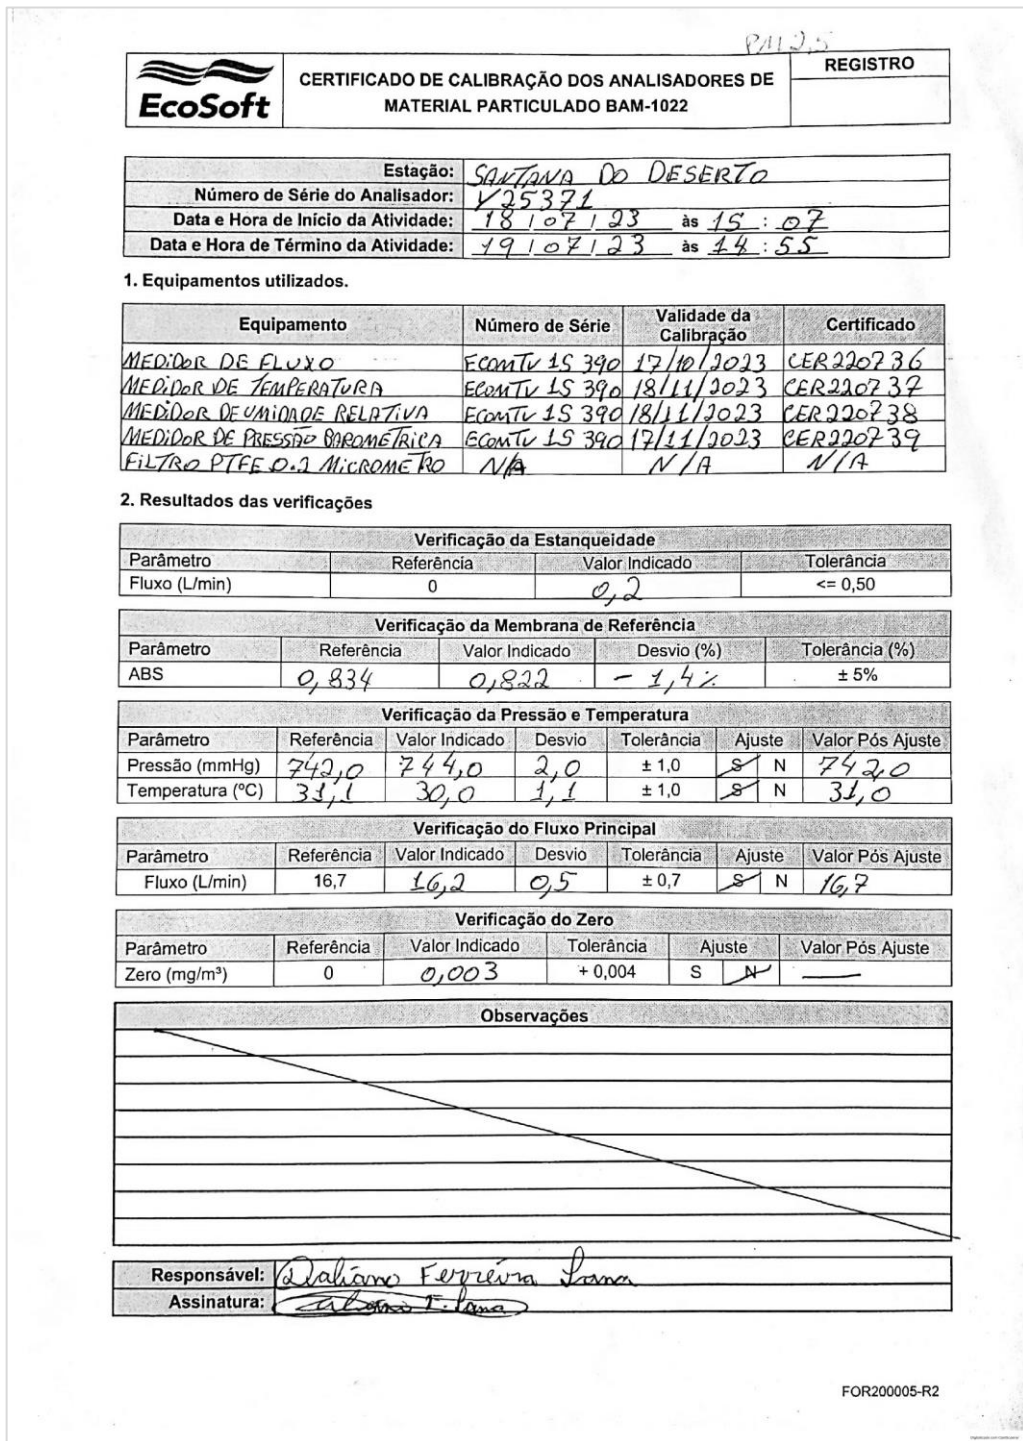 PM 2,5
EcoSoft
CERTIFICADO DE CALIBRAÇÃO DOS ANALISADORES DE
MATERIAL PARTICULADO BAM-1022
REGISTRO
Estação: SANTANA DO DESERTO
Número de Série do Analisador: Y25371
Data e Hora de Início da Atividade: 18 / 07 / 23 às 15 : 07
Data e Hora de Término da Atividade: 19 / 07 / 23 às 14 : 55
1. Equipamentos utilizados.
Equipamento Número de Série Validade da Calibração Certificado
MEDIDOR DE FLUXO ECOMTV 1S 390 17/10/2023 CER220736
MEDIDOR DE TEMPERATURA ECOMTV 1S 390 18/11/2023 CER220737
MEDIDOR DE UMIDADE RELATIVA ECOMTV 1S 390 18/11/2023 CER220738
MEDIDOR DE PRESSÃO BAROMÉTRICA ECOMTV 1S 390 17/11/2023 CER220739
FILTRO PTFE 0.2 MICROMETRO N/A N/A N/A
2. Resultados das verificações
Verificação da Estanqueidade
Parâmetro Referência Valor Indicado Tolerância
Fluxo (L/min) 0 0,2 <= 0,50
Verificação da Membrana de Referência
Parâmetro Referência Valor Indicado Desvio (%) Tolerância (%)
ABS 0,834 0,822 - 1,4% ± 5%
Verificação da Pressão e Temperatura
Parâmetro Referência Valor Indicado Desvio Tolerância Ajuste Valor Pós Ajuste
Pressão (mmHg) 742,0 744,0 2,0 ± 1,0 S N 742,0
Temperatura (ºC) 31,1 30,0 1,1 ± 1,0 S N 31,0
Verificação do Fluxo Principal
Parâmetro Referência Valor Indicado Desvio Tolerância Ajuste Valor Pós Ajuste
Fluxo (L/min) 16,7 16,2 0,5 ± 0,7 S N 16,7
Verificação do Zero
Parâmetro Referência Valor Indicado Tolerância Ajuste Valor Pós Ajuste
Zero (mg/m³) 0 0,003 + 0,004 S N —
Observações
Responsável: Daliano Ferreira Lana
Assinatura:
FOR200005-R2